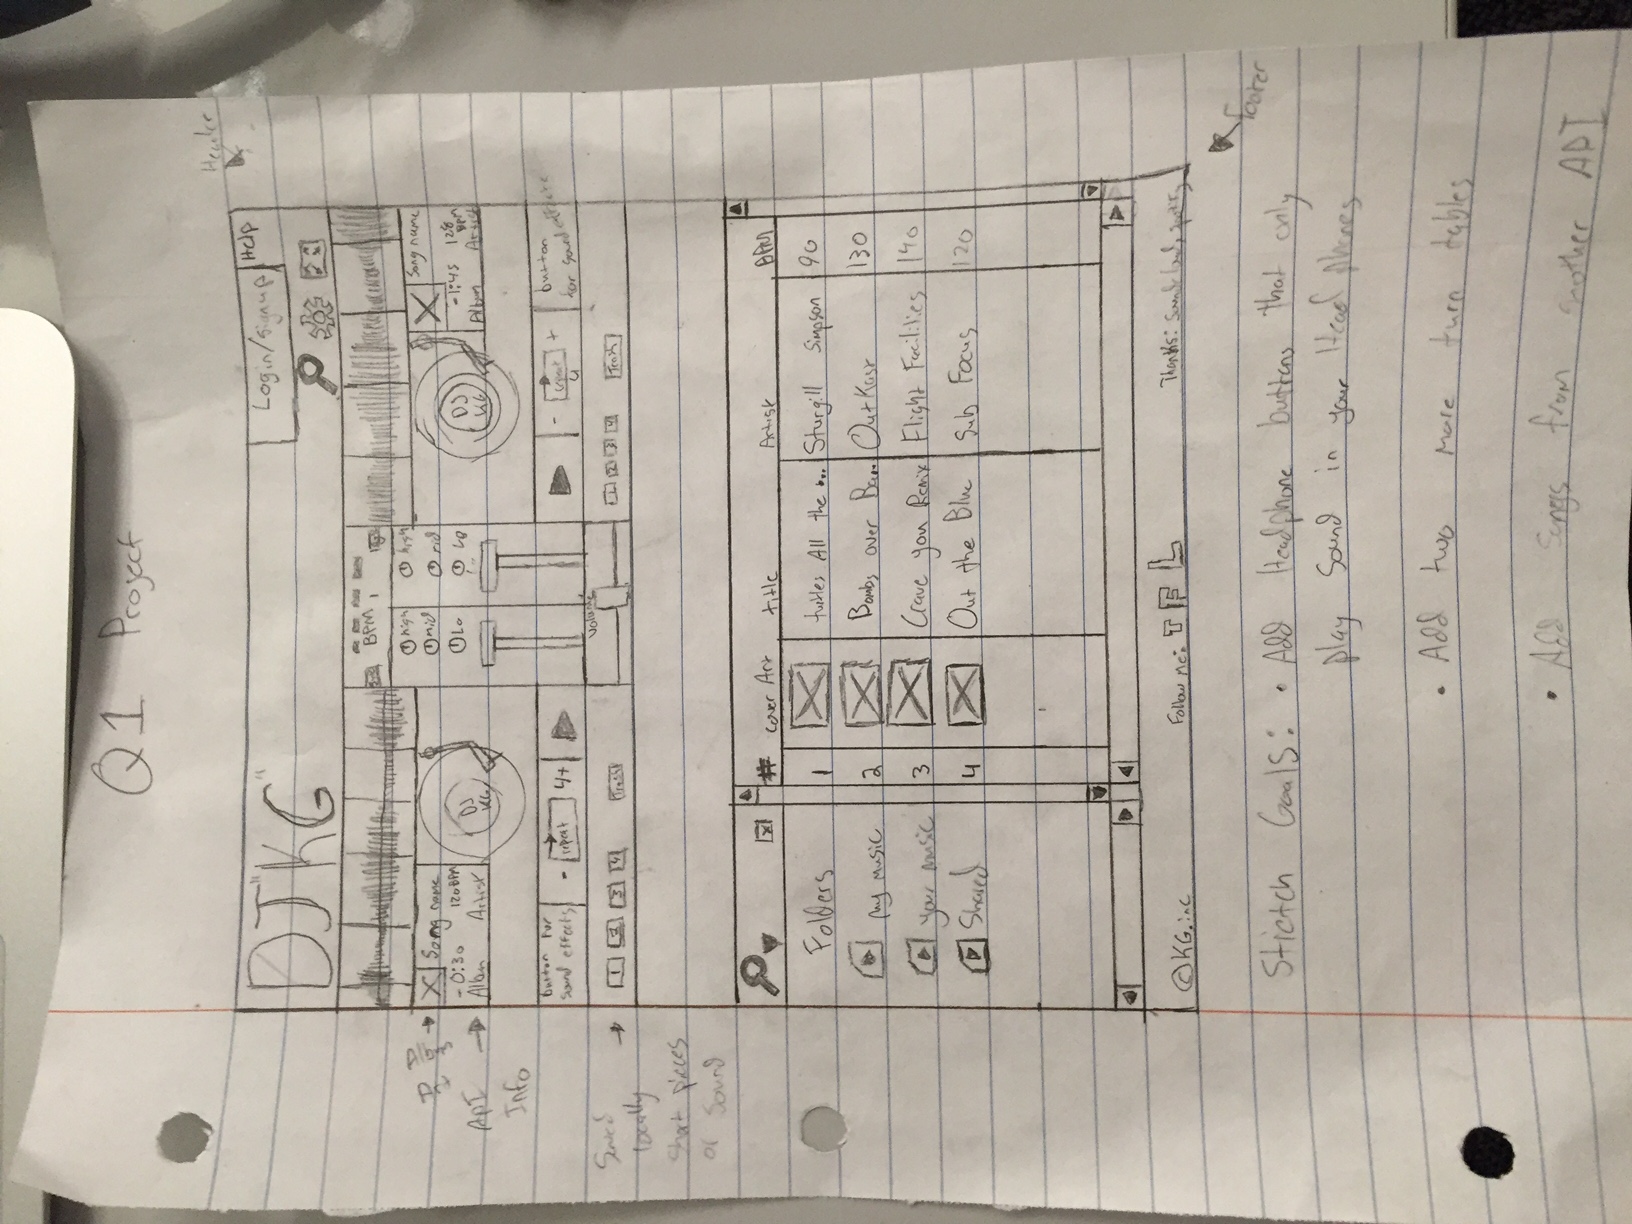 Q1 Project
Header
DJ "KG"
Login/signup
Help
BPM
high
high
mid
mid
Lo
Lo
D3
Song name
-0:30 120 BPM
Album Artist
DJ KG
DJ KG
Song name
-1:45 128 BPM
Album Artist
API
Info
button for
sound effects
- repeat 4+
- repeat +
4
button
for sound effects
Volume
Saved
locally
Short pieces
of Sound
1 2 3 4 Trash
1 2 3 4 Trash
x
# Cover Art title Artist BPM
Folders
my music
your music
Shared
1 turtles All the ... Sturgill Simpson 90
2 Bombs over Ba... OutKast 130
3 Crave you Remix Flight Facilities 140
4 Out the Blue Sub Focus 120
©KG.inc
Follow me: T F L
Thanks: Soundcloud, spotify
footer
Stretch Goals: • Add Headphone buttons that only
play Sound in your Head phones
• Add two more turn tables
• Add songs from another API